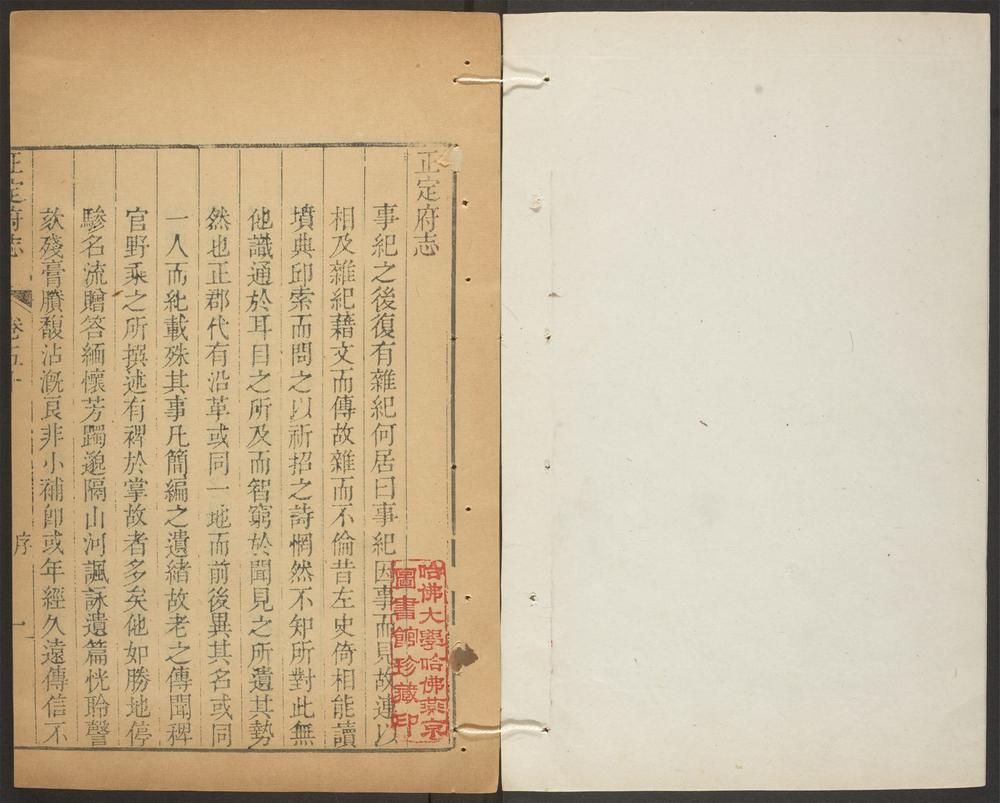 正定府志
事紀之後復有雜紀何居曰事紀因事而見故連以
相及雜紀藉文而傳故雜而不倫昔左史倚相能讀
墳典邱索而問之以祈招之詩惘然不知所對此無
他識通於耳目之所及而智窮於聞見之所遺其勢
然也正郡代有沿革或同一地而前後異其名或同
一人而紀載殊其事凡簡編之遺緒故老之傳聞稗
官野乘之所撰述有裨於掌故者多矣他如勝地停
驂名流贈答緬懷芳躅邈隔山河諷詠遺篇恍聆謦
欬殘膏賸馥沾漑良非小補卽或年經久遠傳信不
正定府志 卷五十 序 一
哈佛大學哈佛燕京
圖書館珍藏印